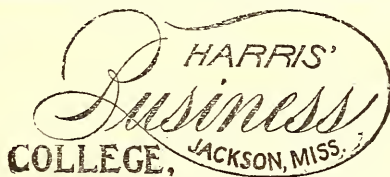 HARRIS'
Business
COLLEGE, JACKSON, MISS.